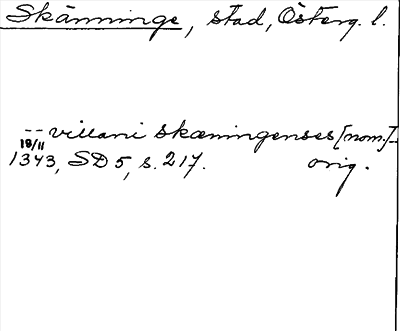 Skänninge, stad, Österg. l.
-- villani skæningenses [nom.] --
19/11
1343, SD 5, s. 217. orig.